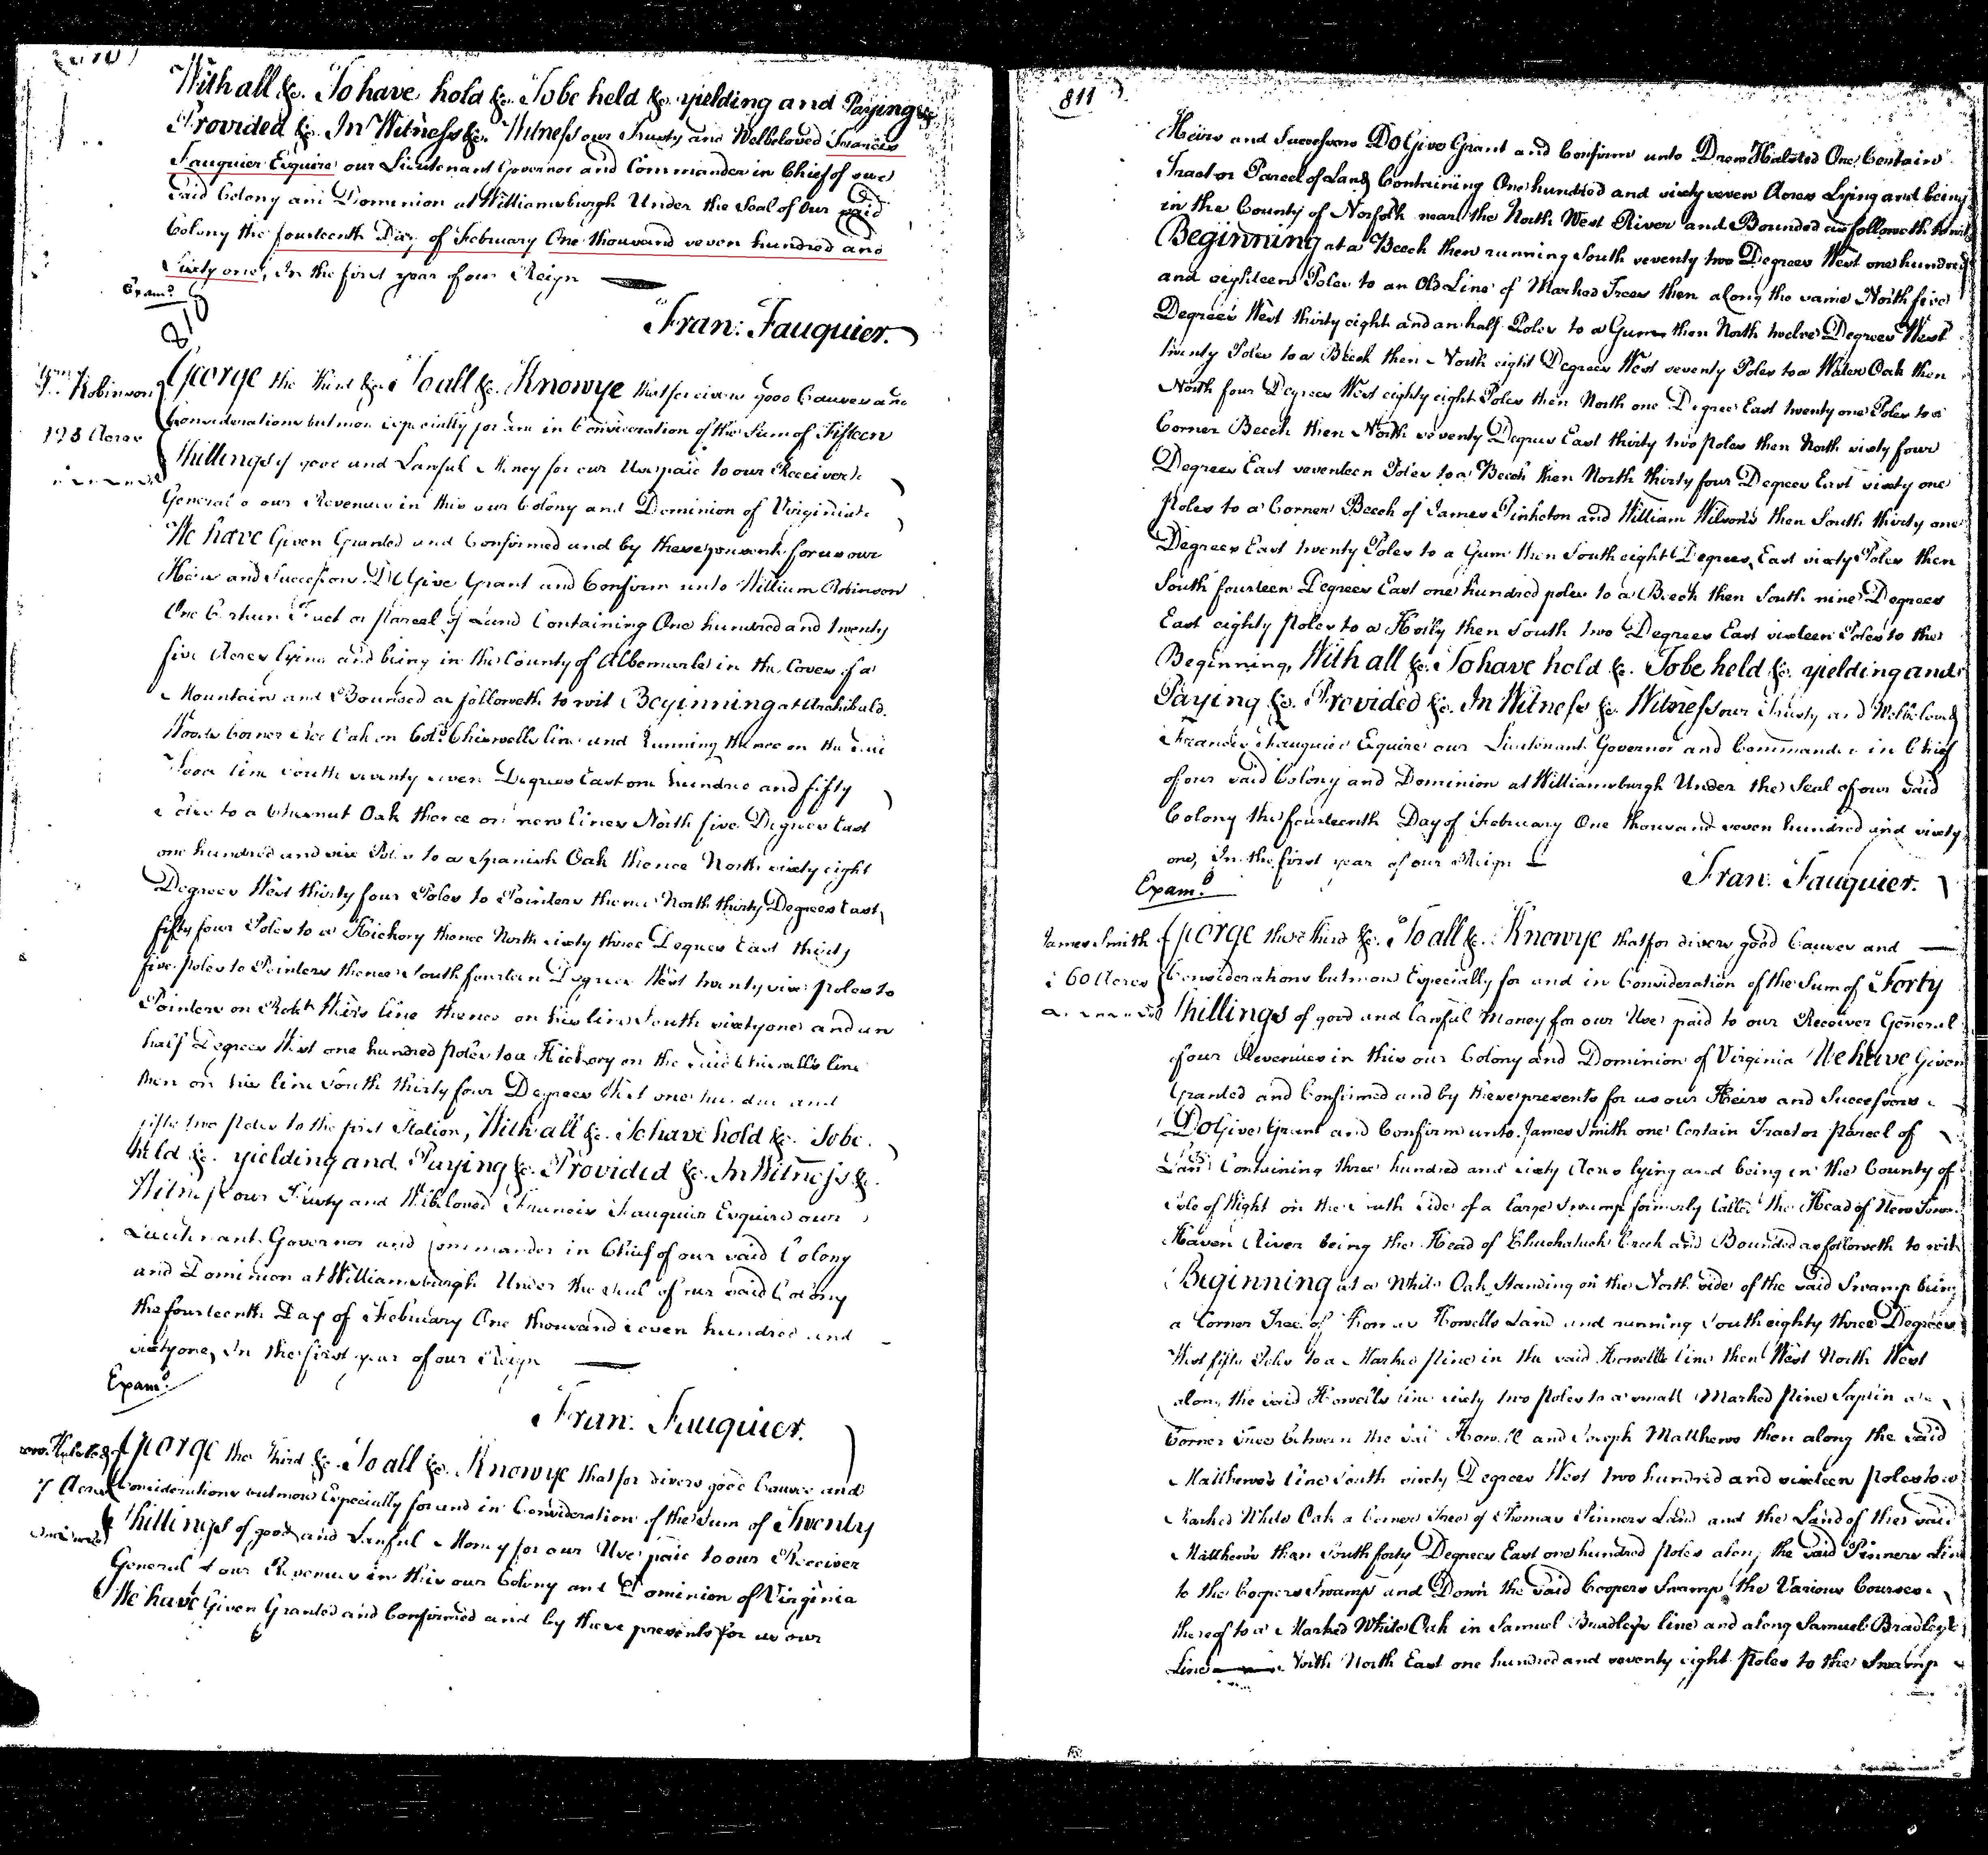 With all &c. To have hold &c. To be held &c. yielding and Paying &c
Provided &c. In Witness &c. Witness our Trusty and Welbeloved Francis
Fauquier Esquire our Lieutenant Governor and Commander in Chief of our
said Colony and Dominion at Williamsburgh Under the Seal of our said
Colony the fourteenth Day of February One thousand seven hundred and
Sixty one, In the first year of our Reign
Exam.d
810
Fran: Fauquier.
Robinson
George the Third &c. To all &c. Know ye that for divers good Causes and
Acres
Considerations but more especially for and in Consideration of the Sum of Fifteen
Shillings of good and Lawful Money for our Use paid to our Receiver
General of our Revenues in this our Colony and Dominion of Virginia
We have Given Granted and Confirmed and by these presents for us our
Heirs and Successors Do Give Grant and Confirm unto William Robinson
One Certain Tract or parcel of Land Containing One hundred and twenty
five Acres lying and being in the County of Albemarle in the Coves of a
Mountain and Bounded as followeth to wit Beginning at Archibald
Woods Corner Red Oak on Colo. Chiswells line and Running thence on the said
Woods line South seventy seven Degrees East one hundred and fifty
Poles to a Chesnut Oak thence on new lines North five Degrees East
one hundred and six Poles to a Spanish Oak thence North sixty eight
Degrees West thirty four Poles to Pointers thence North thirty Degrees East
fifty four Poles to a Hickory thence North sixty three Degrees East thirty
five poles to Pointers thence South fourteen Degrees West twenty six poles to
Pointers on line thence on his line South sixty one and an
half Degrees West one hundred poles to a Hickory on the said Chiswells line
then on his line South thirty four Degrees West one hundred and
fifty two poles to the first Station, With all &c. To have hold &c. To be
held &c. yielding and Paying &c. Provided &c. In Witness &c.
Witness our Trusty and Welbeloved Francis Fauquier Esquire our
Lieutenant Governor and Commander in Chief of our said Colony
and Dominion at Williamsburgh Under the Seal of our said Colony
the fourteenth Day of February One thousand seven hundred and
sixty one, In the first year of our Reign
Exam.d
Fran: Fauquier.
George the Third &c. To all &c. Know ye that for divers good Causes and
7 Acres
Considerations but more Especially for and in Consideration of the Sum of Twenty
Shillings of good and Lawful Money for our Use paid to our Receiver
General of our Revenues in this our Colony and Dominion of Virginia
We have Given Granted and Confirmed and by these presents for us our
811
Heirs and Successors Do Give Grant and Confirm unto Drew Halsted One Certain
Tract or Parcel of Land Containing One hundred and sixty seven Acres Lying and being
in the County of Norfolk near the North West River and Bounded as followeth to wit
Beginning at a Beech then running South seventy two Degrees West one hundred
and eighteen Poles to an Old Line of Marked Trees then along the same North five
Degrees West thirty eight and an half Poles to a Gum then North twelve Degrees West
twenty Poles to a Beech then North eight Degrees West seventy Poles to a Water Oak then
North four Degrees West eighty eight Poles then North one Degree East twenty one Poles to a
Corner Beech then North seventy Degrees East thirty two poles then North sixty four
Degrees East seventeen Poles to a Beech then North thirty four Degrees East sixty one
Poles to a Corner Beech of James Pinketon and William Wilsons then South thirty one
Degrees East twenty Poles to a Gum then South eight Degrees East sixty Poles then
South fourteen Degrees East one hundred poles to a Beech then South nine Degrees
East eighty poles to a Holly then South two Degrees East sixteen Poles to the
Beginning, With all &c. To have hold &c. To be held &c. yielding and
Paying &c. Provided &c. In Witness &c. Witness our Trusty and Welbeloved
Francis Fauquier Esquire our Lieutenant Governor and Commander in Chief
of our said Colony and Dominion at Williamsburgh Under the Seal of our said
Colony the fourteenth Day of February One thousand seven hundred and sixty
one, In the first year of our Reign
Exam.d
Fran: Fauquier.
James Smith
George the Third &c. To all &c. Know ye that for divers good Causes and
60 Acres
Considerations but more Especially for and in Consideration of the Sum of Forty
Shillings of good and lawful Money for our Use paid to our Receiver General
of our Revenues in this our Colony and Dominion of Virginia We have Given
Granted and Confirmed and by these presents for us our Heirs and Successors
Do Give Grant and Confirm unto James Smith one Certain Tract or parcel of
Land Containing three hundred and sixty Acres lying and being in the County of
Isle of Wight on the South side of a large Swamp formerly Called the Head of New Town
Haven River being the Head of Chuckatuck Creek and Bounded as followeth to wit
Beginning at a White Oak Standing on the North side of the said Swamp being
a Corner Tree of Thomas Howells Land and running South eighty three Degrees
West fifty Poles to a Marked pine in the said Howells line then West North West
along the said Howells line sixty two poles to a small Marked pine Saplin a
Corner Tree between the said Howell and Joseph Matthews then along the said
Matthews's line South sixty Degrees West two hundred and sixteen poles to a
Marked White Oak a Corner Tree of Thomas Pinners Land and the Land of the said
Matthews than South forty Degrees East one hundred poles along the said Pinners Line
to the Coopers Swamp and Down the said Coopers Swamp the Various Courses
thereof to a Marked White Oak in Samuel Bradleys line and along Samuel Bradleys
Line North North East one hundred and seventy eight poles to the Swamp